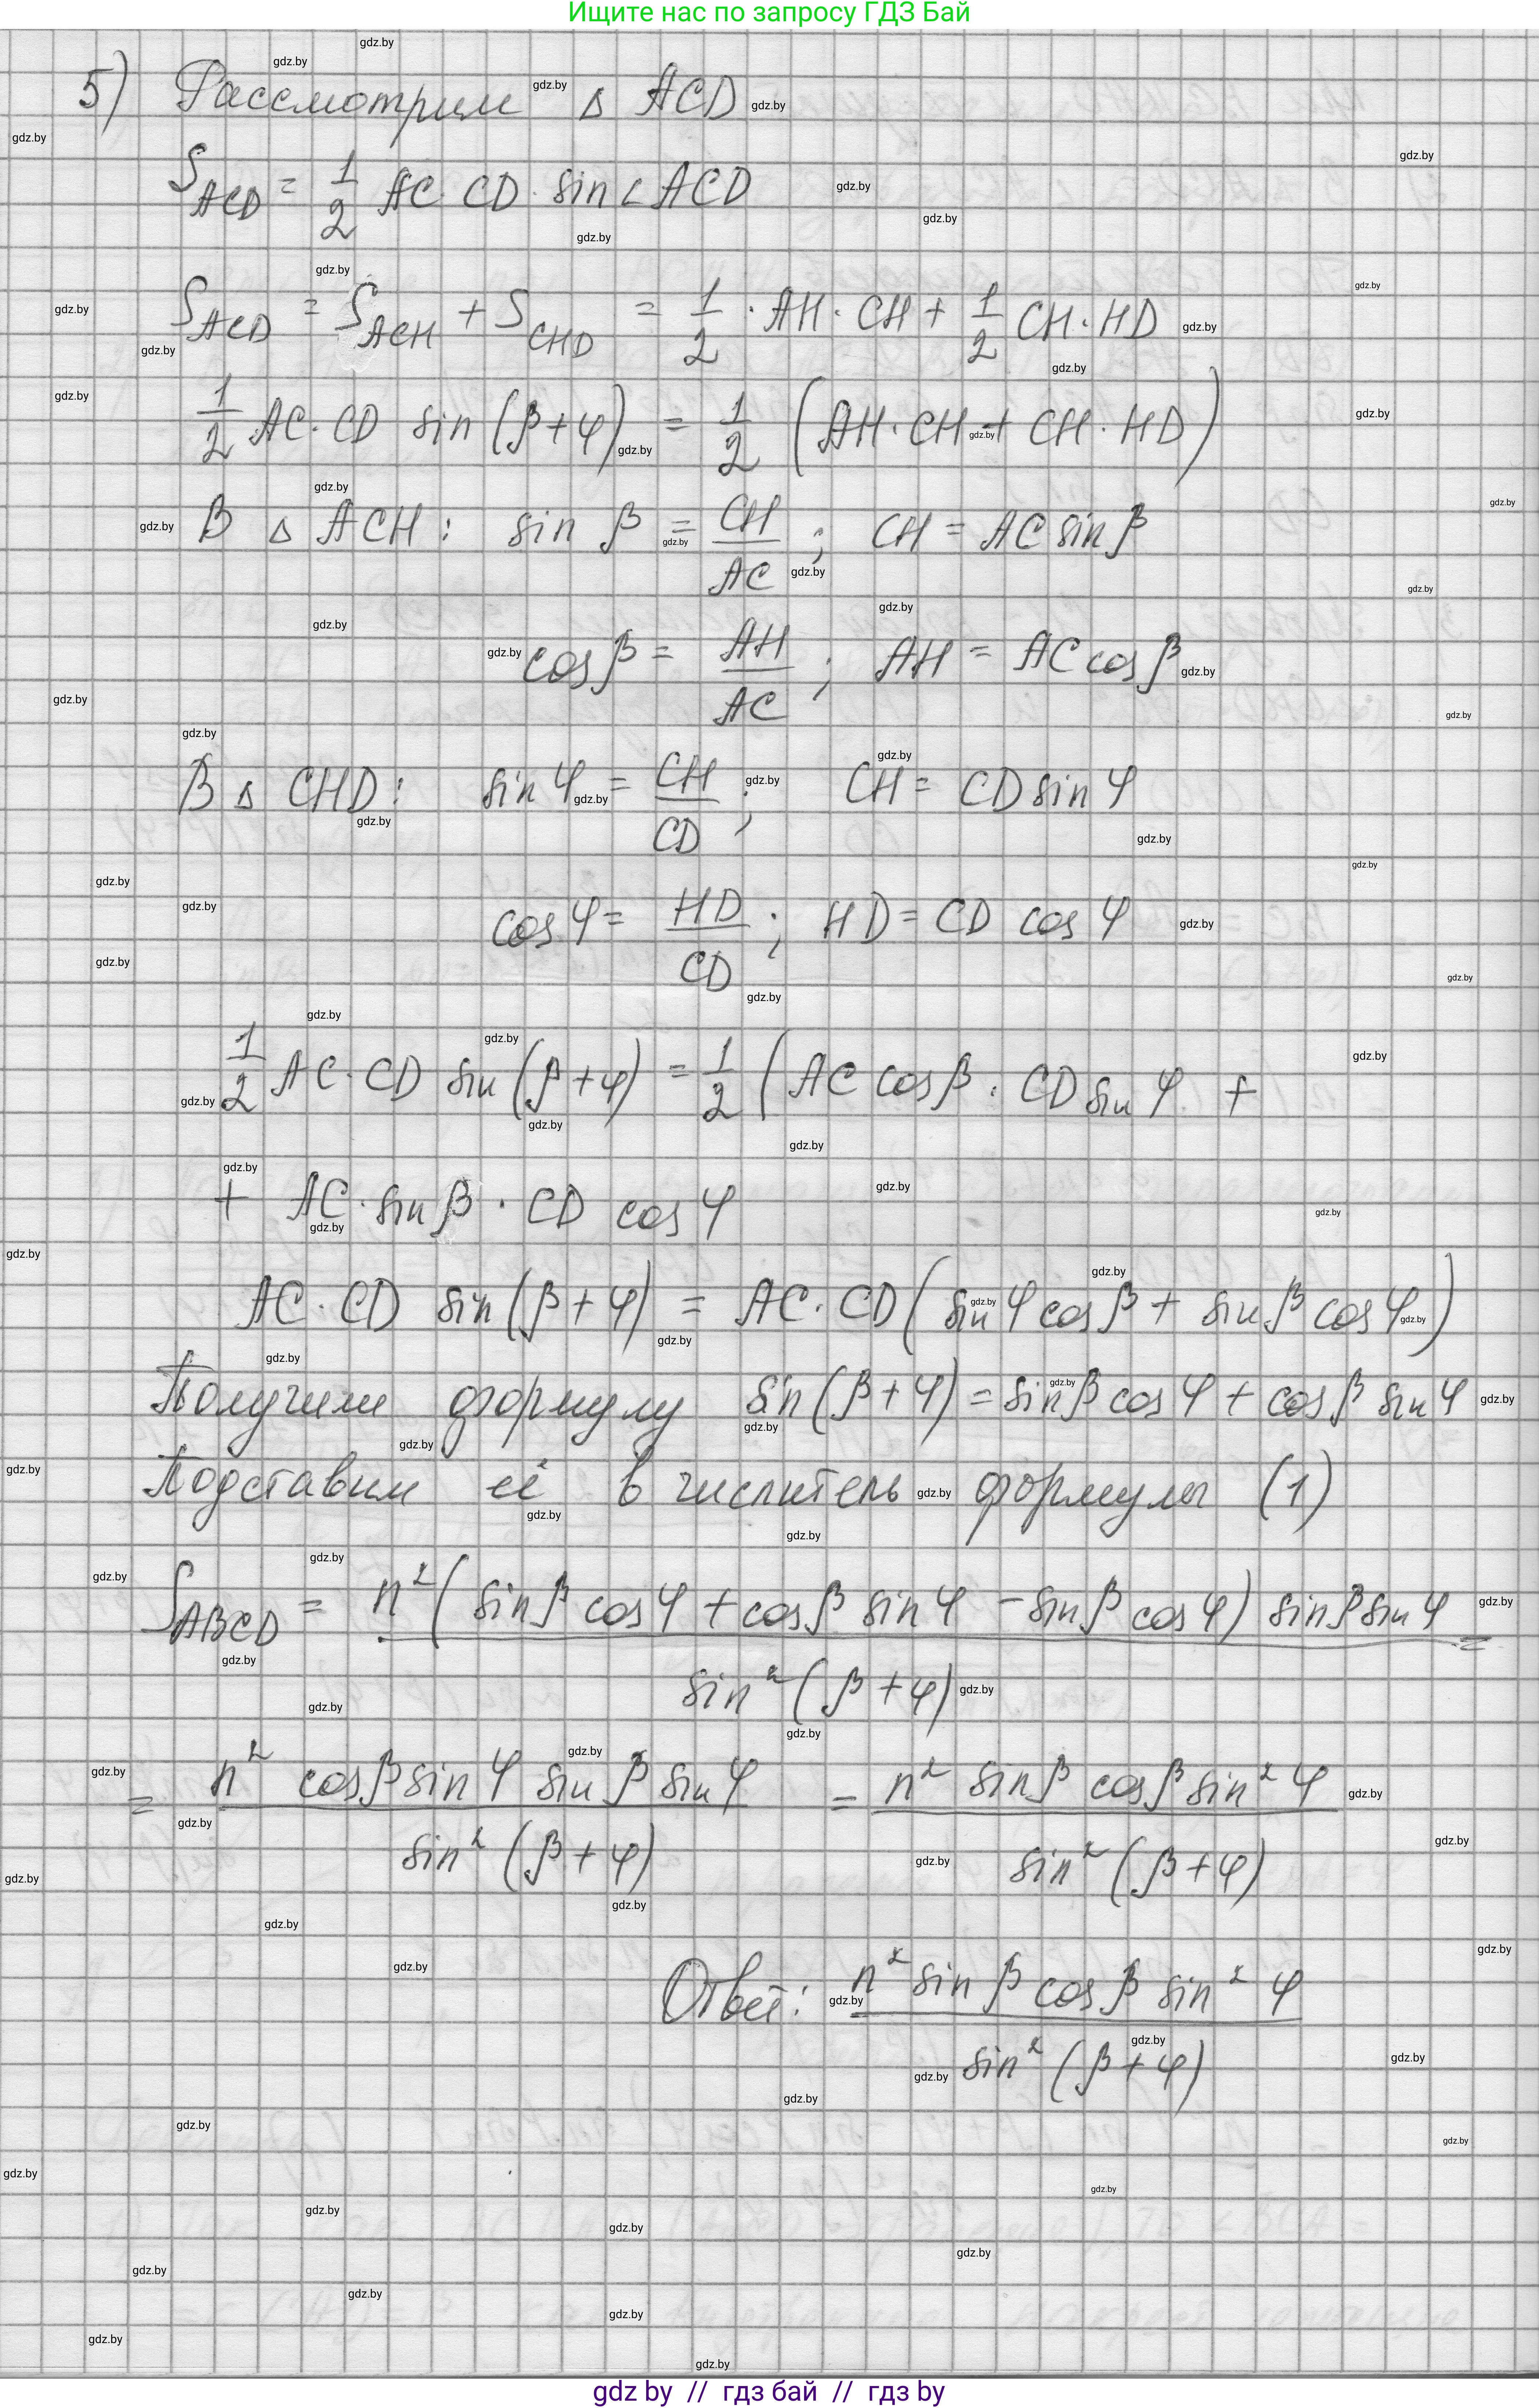 Ищите нас по запросу ГДЗ Бай
5) Рассмотрим Δ ACD
S_ACD = 1/2 AC · CD · sin ∠ ACD
S_ACD = S_ACH + S_CHD = 1/2 · AH · CH + 1/2 CH · HD
1/2 AC · CD sin (β+φ) = 1/2 (AH · CH + CH · HD)
В Δ ACH: sin β = CH/AC ; CH = AC sin β
cos β = AH/AC ; AH = AC cos β
В Δ CHD: sin φ = CH/CD ; CH = CD sin φ
cos φ = HD/CD ; HD = CD cos φ
1/2 AC · CD sin (β+φ) = 1/2 (AC cos β · CD sin φ +
+ AC · sin β · CD cos φ
AC · CD sin (β+φ) = AC · CD (sin φ cos β + sin β cos φ)
Получили формулу sin (β+φ) = sin β cos φ + cos β sin φ
Подставим её в числитель формулы (1)
S_ABCD = n² (sin β cos φ + cos β sin φ − sin β cos φ) sin β sin φ / sin² (β+φ) =
= n² cos β sin φ sin β sin φ / sin² (β+φ) = n² sin β cos β sin² φ / sin² (β+φ)
Ответ: n² sin β cos β sin² φ / sin² (β+φ)
gdz by // гдз бай // гдз by